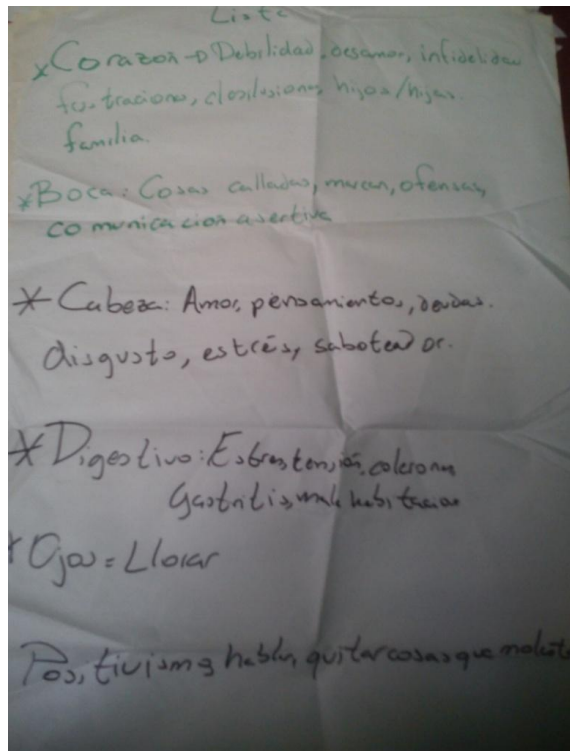 Lista
*Corazon → Debilidad, desamor, infidelidad
frustraciones, desilusiones, hijos/hijas.
familia.
*Boca: Cosas calladas, marcan, ofensas,
comunicacion asertiva
* Cabeza: Amor, pensamientos, deudas.
disgusto, estrés, saboteador.
* Digestivo: Estres, tensión, colon
Gastritis, mala
* Ojos = Llorar
Positivismo, hablar, quitar cosas que molest